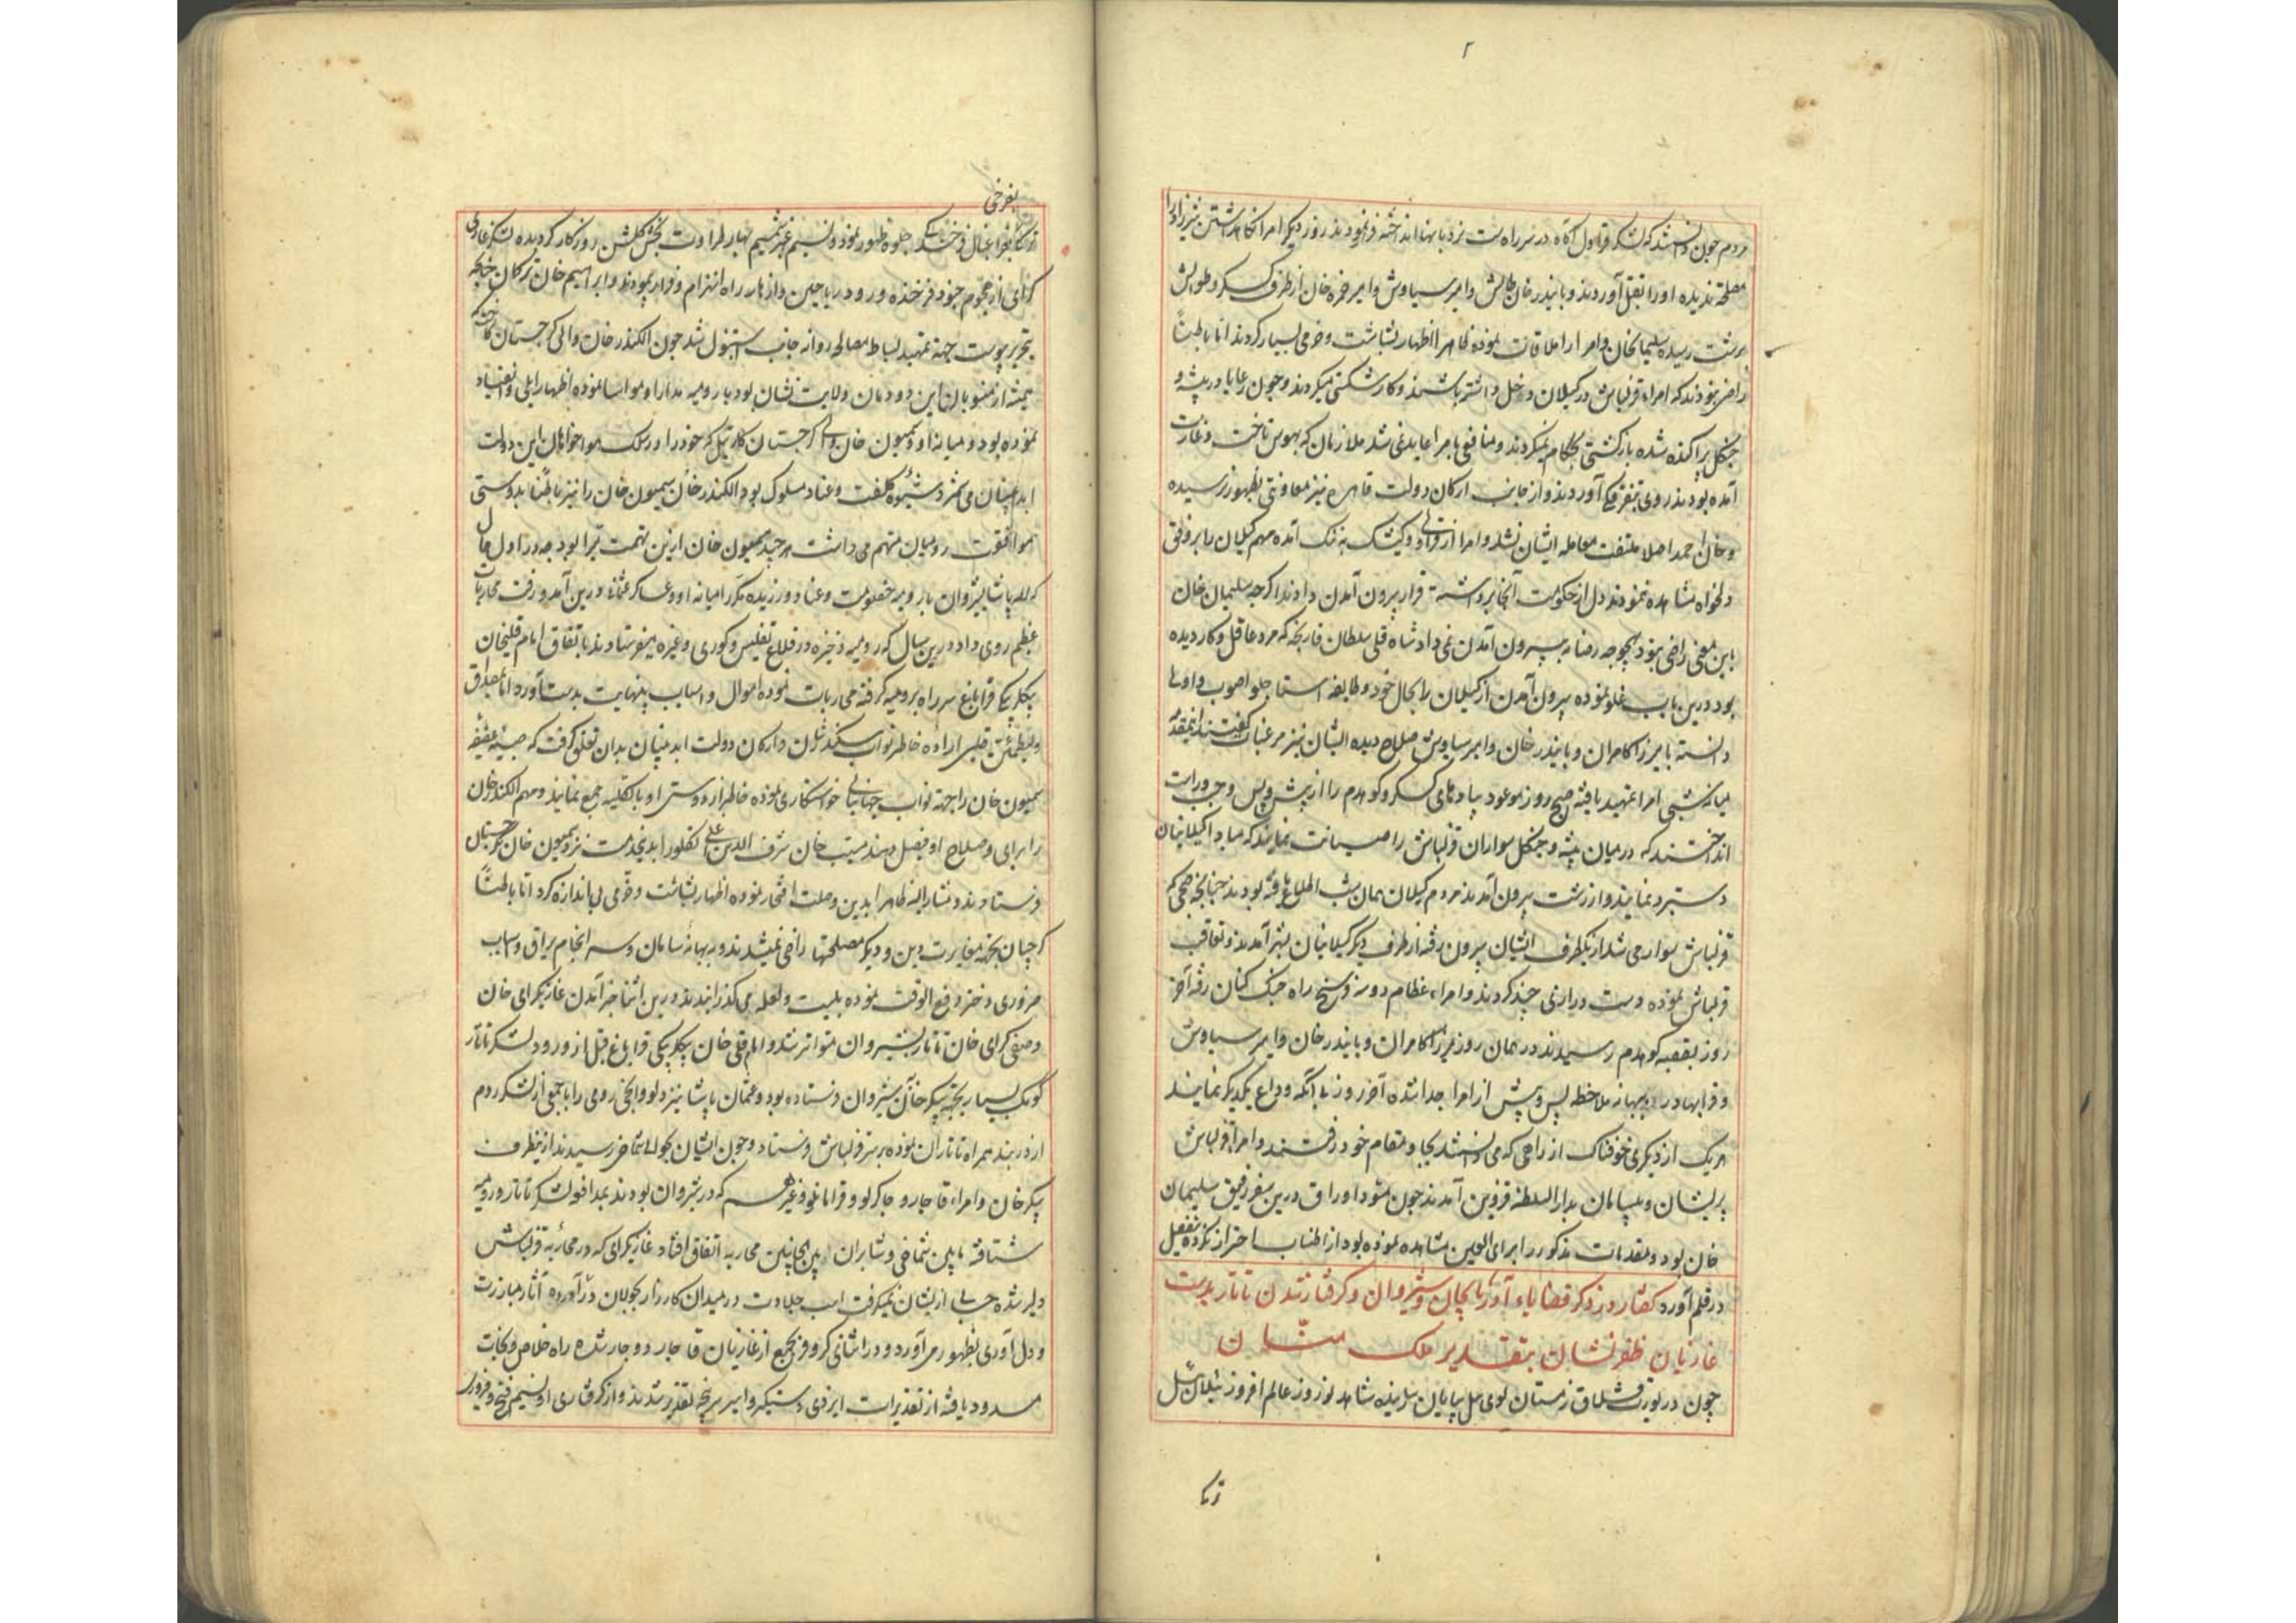 ۲
مردم چون دانستند که لشکر قراول آگاه در سر راه است نردبانها انداخته فرار نمودند روز دیگر امرا نگاهداشتن شیرزاد را
مصلحت ندیده او را بقتل آوردند و بایندر خان طالش و امیر سیاوش و امیر حمزه خان از طرف کسکر و طوالش
برشت رسیده سلیمان خان و امرا را ملاقات نموده ظاهرا اظهار بشاشت و خرمی بسیار کردند اما باطنا
راضی نبودند که امراء قزلباش در گیلان دخل داشته باشند و کارشکنی میکردند و چون رعایا در بیشه و
جنگل پراکنده شده بازگشتی بحکام نمیکردند و منافعی بامرا عاید نمی شد ملازمان که بهوس تاخت و غارت
آمده بودند روی بتفرقگی آوردند و از جانب ارکان دولت قاهره نیز معاونتی بظهور نرسیده
و خان احمد اصلا ملتفت معامله ایشان نشد و امرا از قراولی و کیشک به تنگ آمده مهم گیلان را بر وفق
دلخواه مشاهده ننمودند دل از حکومت آنجا برداشته قرار بیرون آمدن دادند اگرچه سلیمان خان
باین معنی راضی نبود بهیچوجه رضا به بیرون آمدن نمی داد شاه قلی سلطان قارنجه که مرد عاقل و کاردیده
بود درین باب غلو نموده بیرون آمدن از گیلان را بحال خود و طایفه استاجلو اصوب و اولی
دانسته با میرزا کامران و بایندر خان و امیر سیاوش صلاح دیده ایشان نیز مرغبات گفتند
میانه شبی امرا تمهید یافته صبح روز موعود پیادهای کسکر و کوهدم را از پیش و پس و چپ و راست
انداختند که در میان بیشه و جنگل سواران قزلباش را صیانت نمایند که مبادا گیلانیان
دستبرد نمایند و از رشت بیرون آمدند مردم گیلان همان شب اطلاع یافته بودند چنانچه صبحی که
قزلباش سوار می شد از یکطرف ایشان بیرون رفته از طرف دیگر گیلانیان بشهر آمدند و تعاقب
قزلباش نموده دست درازی چند کردند و امراء عظام دو سه فرسخ راه جنگ کنان رفته آخر
روز بقصبه کوهدم رسیدند در همان روز میرزا کامران و بایندر خان و امیر سیاوش
و قرابهادر ببهانه ملاحظه پس و پیش از امرا جدا شده آخر روز بی آنکه وداع یکدیگر نمایند
هر یک از دیگری خوفناک از راهی که می دانستند بجا و مقام خود رفتند و امراء قزلباش
پریشان و بیسامان بدار السلطنه قزوین آمدند چون مسود اوراق درین سفر رفیق سلیمان
خان بود و مقدمات مذکور را برای العین مشاهده نموده بود از اطناب احتراز نکرده بتفصیل
در قلم آورد گفتار در ذکر قضایاء آذربایجان و شیروان و گرفتار شدن تاتار بدست
غازیان ظفرنشان بتقدیر ملک منّان
چون در یورت قشلاق زمستان لوی ئیل بپایان رسانیده شاهد نوروز عالم افروز ئیلان ئیل
بفرخی
بفراغبال فرخندگی جلوه ظهور نمود و نسیم عنبر شمیم بهار طراوت بخش گلشن روزگار گردیده لشکر غارتگر
سرمای از هجوم جنود فرخنده ورود ریاحین و ازهار راه انهزام و فرار پیمودند و ابراهیم خان ترکمان چنانچه
بتحریر پیوست جهة تمهید بساط مصالحه روانه جانب استنبول شد چون الکندر خان والی گرجستان کاخت
همیشه از منسوبان این دودمان ولایت نشان بود با رومیه مدارا و مواسا نموده اظهار ایلی و انقیاد
نموده بود و میانه او و سمیون خان والی گرجستان کارتیل که خود را در سلک هواخواهان این دولت
ابد پیمان می شمرد شیوه کلفت و عناد مسلوک بود الکندر خان سمیون خان را نیز باطنا بدوستی
موافقت رومیان متهم می داشت هر چند سمیون خان ازین تهمت مبرا بود چه در اول حال
که لله پاشا بشیروان با رومیه خصومت و عناد ورزیده مکرر میانه او و عساکر عثمانی درین آمد و رفت محاربات
عظیم روی داد و درین سال که رومیه ذخیره در قلاع تفلیس و کوری و غیره میفرستادند باتفاق امام قلیخان
بیگلربیگی قراباغ سر راه بر رومیه گرفته محاربات نموده اموال و اسباب بینهایت بدست آورد اما بمصداق
ولیطمئن قلبی اراده خاطر نواب سکندر شان و ارکان دولت ابد پیمان بدان تعلق گرفت که صبیه عفیفه
سمیون خان را جهة نواب جهانبانی خواستگاری نموده خاطر از دوستی او بالکلیه جمع نمایند و مهم الکندر خان
را برای و صلاح او فیصل دهند مسیب خان شرف الدین اغلی تکلو را بدین خدمت نزد سمیون خان بگرجستان
فرستادند و مشار الیه ظاهرا بدین وصلت افتخار نموده اظهار بشاشت و خرمی بی اندازه کرد اما باطنا
گرجیان بجهة مغایرت دین و دیگر مصلحتها راضی نمیشدند و ببهانه سامان و سرانجام یراق و اسباب
ضروری دختر دفع الوقت نموده بلیت و لعل می گذرانیدند درین اثنا خبر آمدن غازیگرای خان
و صفی گرای خان تاتار بشیروان متواتر شد و امام قلی خان بیگلربیگی قراباغ قبل از ورود لشکر تاتار
کومک بسیار بجهة پیکر خان بشیروان فرستاده بود و عثمان پاشا نیز رومی را با جمعی از لشکر روم
از دربند همراه تاتاران نموده بر سر قزلباش فرستاد و چون ایشان بحوالی شماخی رسیدند ازینطرف
پیکر خان و امراء قاجار و چاکرلو و قرامانلو و غیرهم که در شیروان بودند بمدافعه لشکر تاتار و رومیه
شتافته مابین شماخی و شابران بین الجانبین محاربه اتفاق افتاد غازیگرای که در محاربه قزلباش
دلیر شده حسابی از ایشان نمیگرفت اسب جلادت در میدان کارزار بجولان درآورده آثار مبارزت
و دل آوری بظهور می آورد و در اثنای کر و فر بجمع از غازیان قاجار دوچار شده راه خلاص و نجات
مسدود یافته از تقدیرات ایزدی دستگیر و اسیر سرپنجه تقدیر شدند و از گرفتاری او نسیم فتح و فیروزی